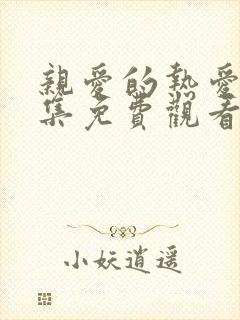 親愛的熱愛
集免費觀看
小妖逍遥